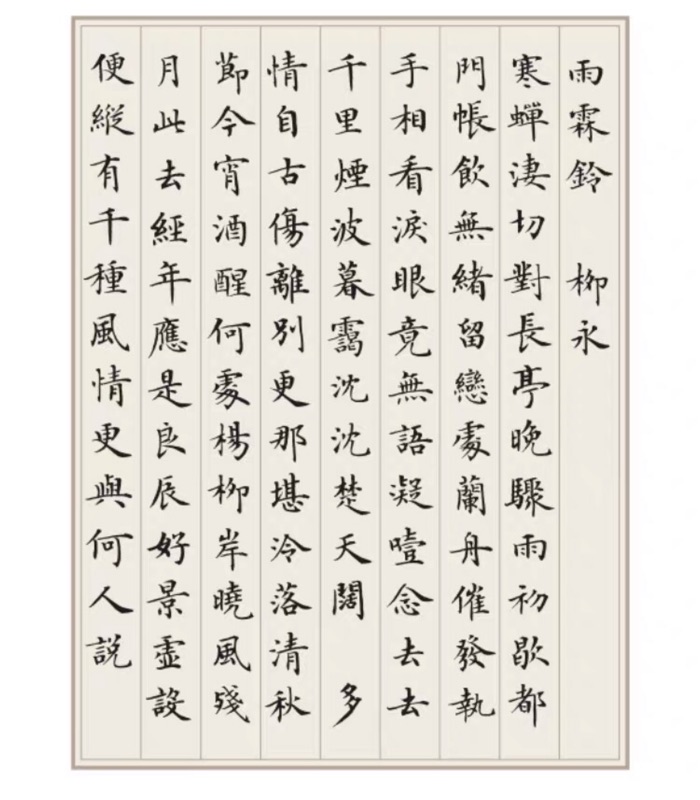 雨霖鈴 柳永
寒蟬淒切對長亭晚驟雨初歇都
門帳飲無緒留戀處蘭舟催發執
手相看淚眼竟無語凝噎念去去
千里煙波暮靄沈沈楚天闊 多
情自古傷離別更那堪冷落清秋
節今宵酒醒何處楊柳岸曉風殘
月此去經年應是良辰好景虛設
便縱有千種風情更與何人說